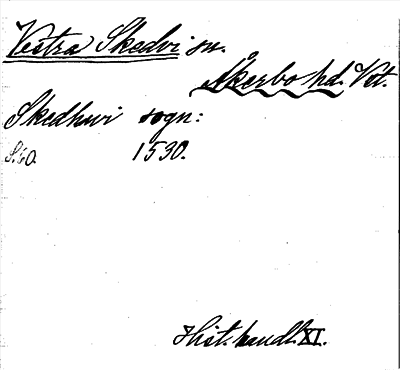 Västra Skedvi sn.
Åkerbo hd. Vst.
Skedhwi sogn:
S. 60. 1530.
Hist. handl. XI.